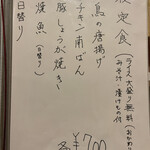 定食（ライス大盛り無料（おかわり
みそ汁 漬けもの付
鳥の唐揚げ
チキン南ばん
豚しょうが焼き
焼魚（日替り）
日替り
各¥700